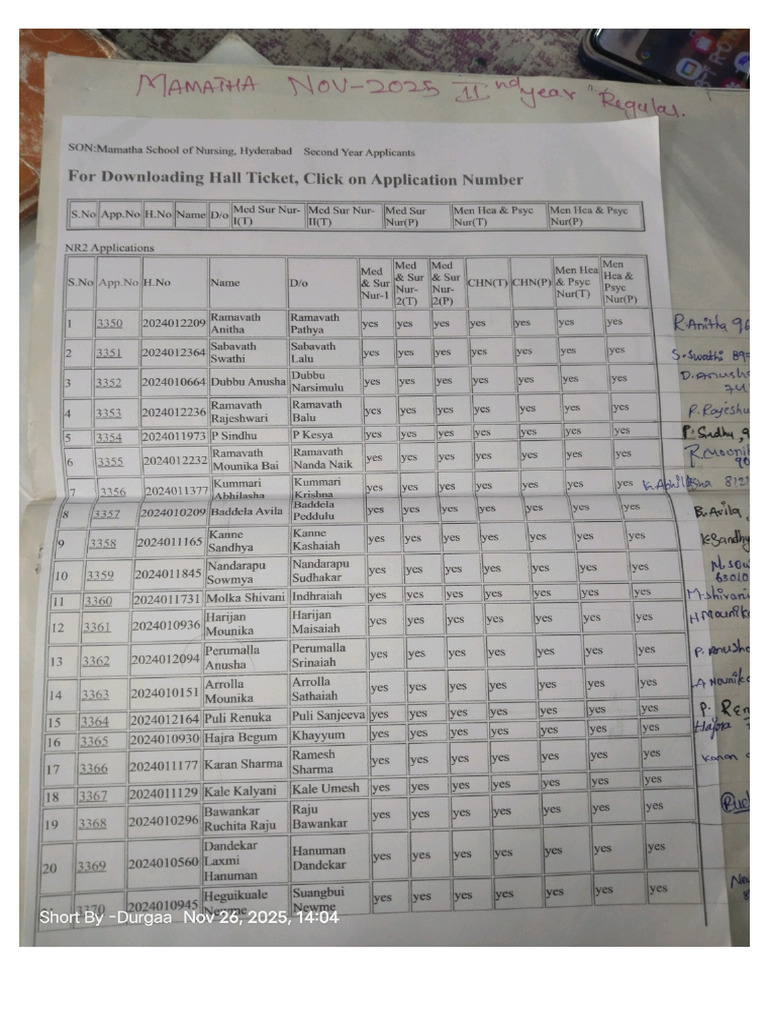 MAMATHA NOV-2025 IInd year "Regular.
SON:Mamatha School of Nursing, Hyderabad Second Year Applicants
For Downloading Hall Ticket, Click on Application Number
S.No App.No H.No Name D/o Med Sur Nur-I(T) Med Sur Nur-II(T) Med Sur Nur(P) Men Hea & Psyc Nur(T) Men Hea & Psyc Nur(P)
NR2 Applications
S.No App.No H.No Name D/o Med & Sur Nur-1 Med & Sur Nur-2(T) Med & Sur Nur-2(P) CHN(T) CHN(P) Men Hea & Psyc Nur(T) Men Hea & Psyc Nur(P)
1 3350 2024012209 Ramavath Anitha Ramavath Pathya yes yes yes yes yes yes yes R.Anitha 96
2 3351 2024012364 Sabavath Swathi Sabavath Lalu yes yes yes yes yes yes yes S.Swathi
3 3352 2024010664 Dubbu Anusha Dubbu Narsimulu yes yes yes yes yes yes yes
4 3353 2024012236 Ramavath Rajeshwari Ramavath Balu yes yes yes yes yes yes yes
5 3354 2024011973 P Sindhu P Kesya yes yes yes yes yes yes yes P.Sindhu
6 3355 2024012232 Ramavath Mounika Bai Ramavath Nanda Naik yes yes yes yes yes yes yes
7 3356 2024011377 Kummari Abhilasha Kummari Krishna yes yes yes yes yes yes yes
8 3357 2024010209 Baddela Avila Baddela Peddulu yes yes yes yes yes yes yes B.Avila,
9 3358 2024011165 Kanne Sandhya Kanne Kashaiah yes yes yes yes yes yes yes K.Sandhy
10 3359 2024011845 Nandarapu Sowmya Nandarapu Sudhakar yes yes yes yes yes yes yes
11 3360 2024011731 Molka Shivani Indhraiah yes yes yes yes yes yes yes M.Shivani
12 3361 2024010936 Harijan Mounika Harijan Maisaiah yes yes yes yes yes yes yes H.Mounika
13 3362 2024012094 Perumalla Anusha Perumalla Srinaiah yes yes yes yes yes yes yes P.Anusha
14 3363 2024010151 Arrolla Mounika Arrolla Sathaiah yes yes yes yes yes yes yes A Mounika
15 3364 2024012164 Puli Renuka Puli Sanjeeva yes yes yes yes yes yes yes P. Ren
16 3365 2024010930 Hajra Begum Khayyum yes yes yes yes yes yes yes Hajra
17 3366 2024011177 Karan Sharma Ramesh Sharma yes yes yes yes yes yes yes Karan
18 3367 2024011129 Kale Kalyani Kale Umesh yes yes yes yes yes yes yes
19 3368 2024010296 Bawankar Ruchita Raju Raju Bawankar yes yes yes yes yes yes yes
20 3369 2024010560 Dandekar Laxmi Hanuman Hanuman Dandekar yes yes yes yes yes yes yes
3370 2024010945 Heguikuale Newme Suangbui Newme yes yes yes yes yes yes yes
Short By -Durgaa Nov 26, 2025, 14:04